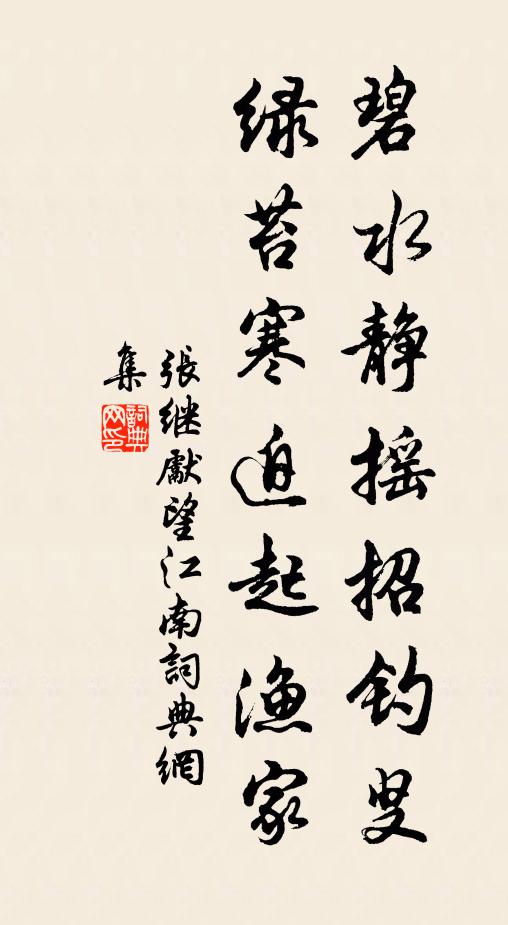 碧水静摇招钓叟
绿苔寒迫起渔家
張继獻望江南詞典網
集
詞典网印